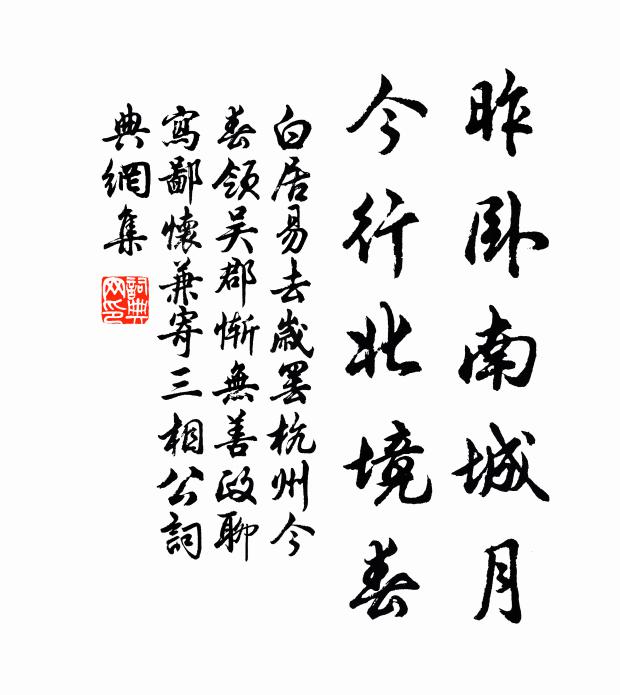 昨卧南城月
今行北境春
白居易去歲罷杭州今
春領吳郡慚無善政聊
寫鄙懷兼寄三相公詞
典網集
詞典
网印